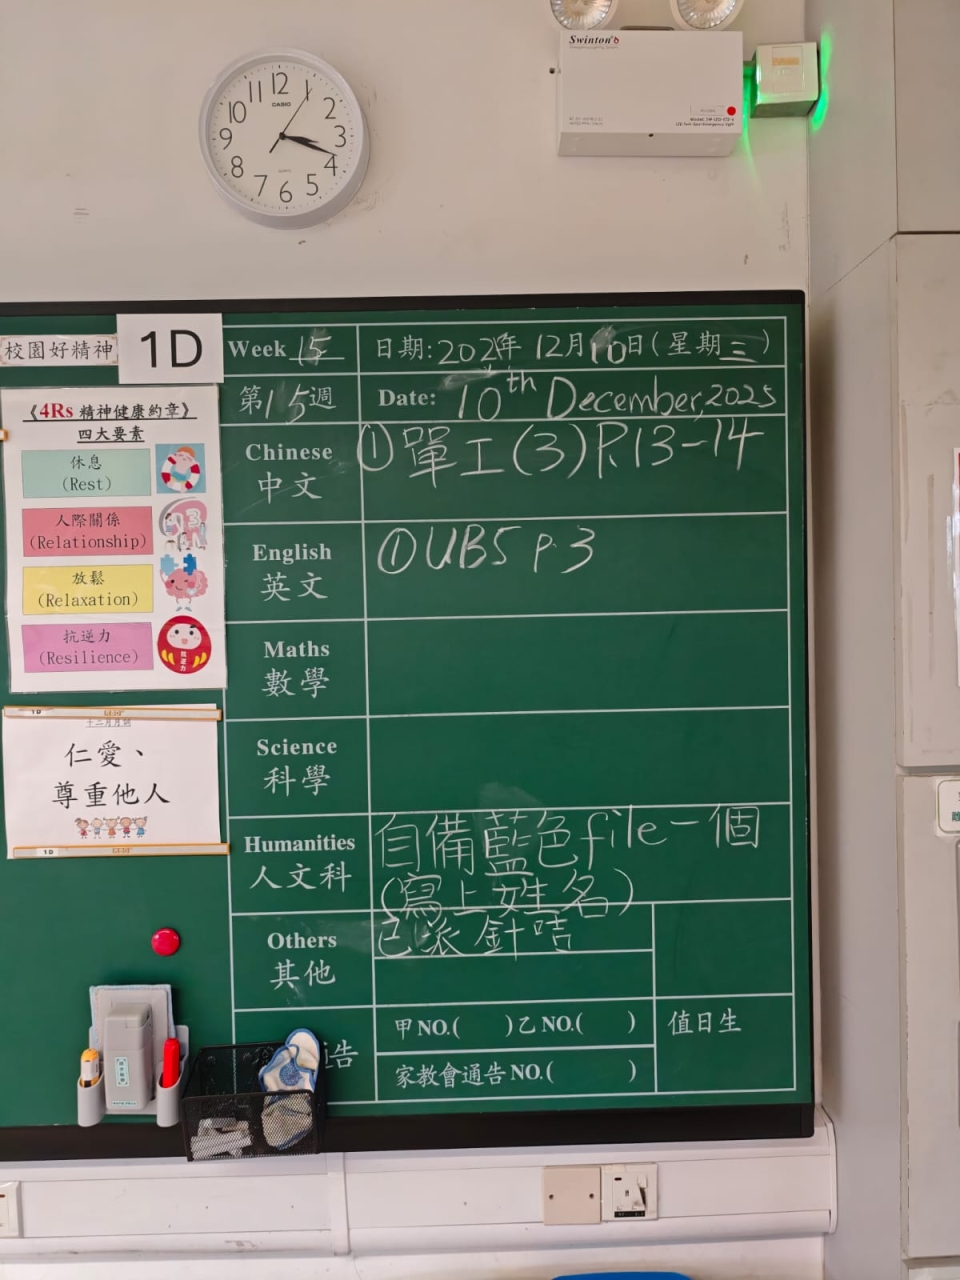 Swinton
12 1 2 3 4 5 6 7 8 9 10 11
CASIO
校園好精神
1D
Week 15
日期:2025年 12月10日(星期三)
第15週
Date: 10th December, 2025
《4Rs 精神健康約章》
四大要素
休息
(Rest)
人際關係
(Relationship)
放鬆
(Relaxation)
抗逆力
(Resilience)
Chinese
中文
①單工(3)P.13-14
English
英文
①UB5 p.3
Maths
數學
Science
科學
十二月月訓
仁愛、
尊重他人
1D
Humanities
人文科
自備藍色file一個
(寫上姓名)
Others
其他
已派針咭
通告
甲NO.( )乙NO.( )
值日生
家教會通告NO.( )